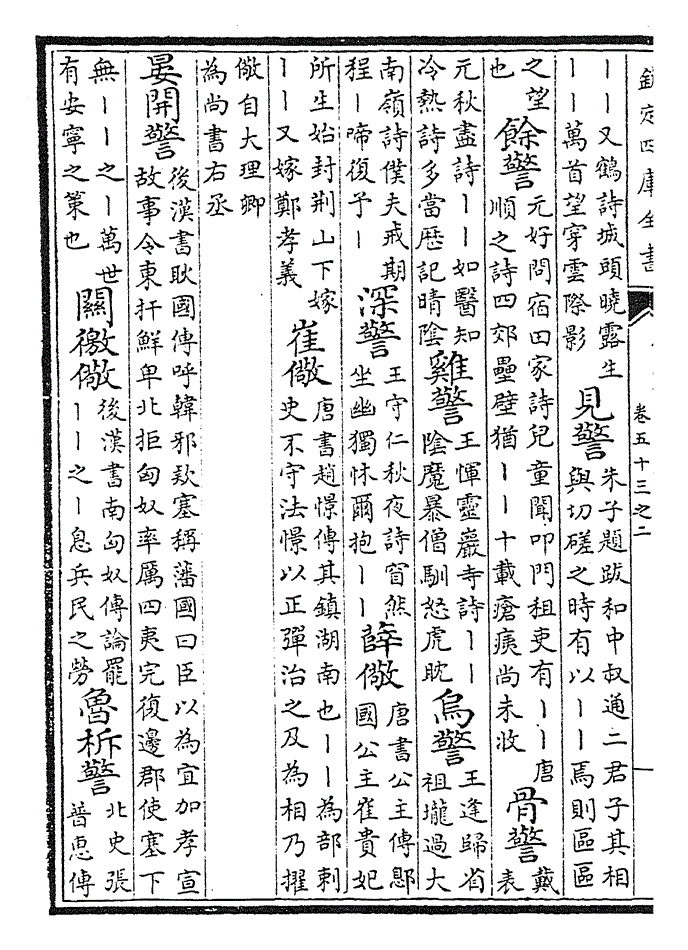 欽定四庫全書
卷五十三之二
丨丨又鶴詩城頭曉露生
丨丨萬首望穿雲際影
見警
朱子題跋和中叔通二君子其相
與切磋之時有以丨丨焉則區區
之望
也
餘警
元好問宿田家詩兒童聞叩門租吏有丨丨唐
順之詩四郊壘壁猶丨丨十載瘡痍尚未收
骨警
戴
表
元秋盡詩丨丨如醫知
冷熱詩多當歴記晴陰
雞警
王惲靈巖寺詩丨丨
陰魔暴僧馴怒虎眈
烏警
王逢歸省
祖壠過大
南嶺詩僕夫戒期
程丨啼復予丨
深警
王守仁秋夜詩窅然
坐幽獨怵爾抱丨丨
薛儆
唐書公主傳鄎
國公主崔貴妃
所生始封荆山下嫁
丨丨又嫁鄭孝義
崔儆
唐書趙憬傳其鎮湖南也丨丨為部刺
史不守法憬以正彈治之及為相乃擢
儆自大理卿
為尚書右丞
晏開警
後漢書耿國傳呼韓邪欵塞稱藩國曰臣以為宜加孝宣
故事令東扞鮮卑北拒匈奴率厲四夷完復邊郡使塞下
無丨丨之丨萬世
有安寧之策也
關徼儆
後漢書南匈奴傳論罷
丨丨之丨息兵民之勞
魯柝警
北史張
普恵傳